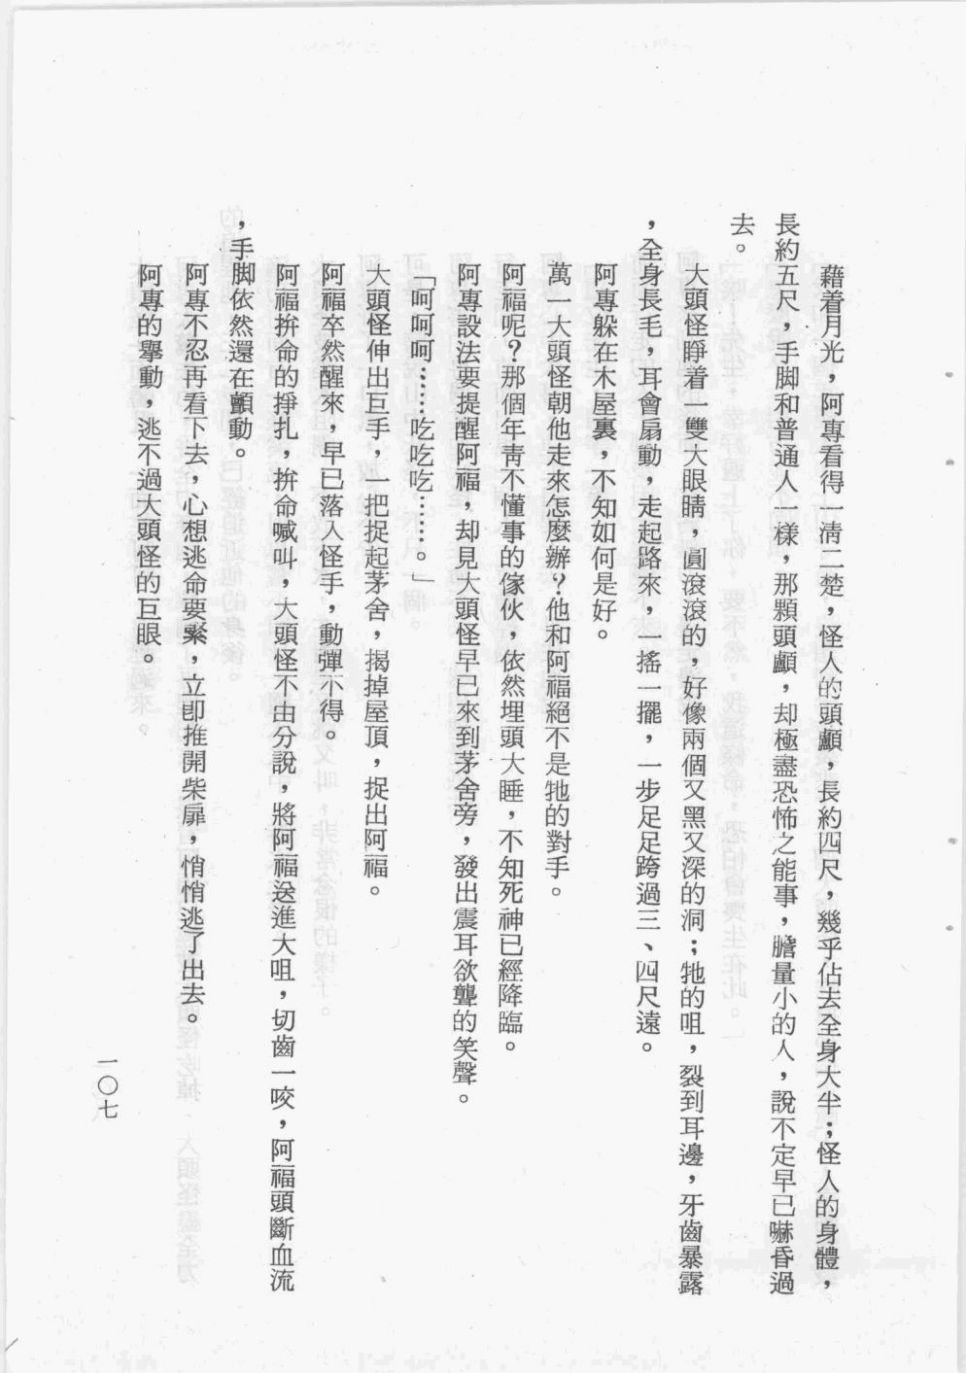 藉着月光，阿專看得一淸二楚，怪人的頭顱，長約四尺，幾乎佔去全身大半；怪人的身體，
長約五尺，手脚和普通人一樣，那顆頭顱，却極盡恐怖之能事，膽量小的人，說不定早已嚇昏過
去。
大頭怪睜着一雙大眼睛，圓滾滾的，好像兩個又黑又深的洞；牠的咀，裂到耳邊，牙齒暴露
，全身長毛，耳會扇動，走起路來，一搖一擺，一步足足跨過三、四尺遠。
阿專躲在木屋裏，不知如何是好。
萬一大頭怪朝他走來怎麼辦？他和阿福絕不是牠的對手。
阿福呢？那個年靑不懂事的傢伙，依然埋頭大睡，不知死神已經降臨。
阿專設法要提醒阿福，却見大頭怪早已來到茅舍旁，發出震耳欲聾的笑聲。
「呵呵呵……吃吃吃……。」
大頭怪伸出巨手，一把捉起茅舍，揭掉屋頂，捉出阿福。
阿福卒然醒來，早已落入怪手，動彈不得。
阿福拚命的掙扎，拚命喊叫，大頭怪不由分說，將阿福送進大咀，切齒一咬，阿福頭斷血流
，手脚依然還在顫動。
阿專不忍再看下去，心想逃命要緊，立卽推開柴扉，悄悄逃了出去。
阿專的擧動，逃不過大頭怪的巨眼。
一〇七